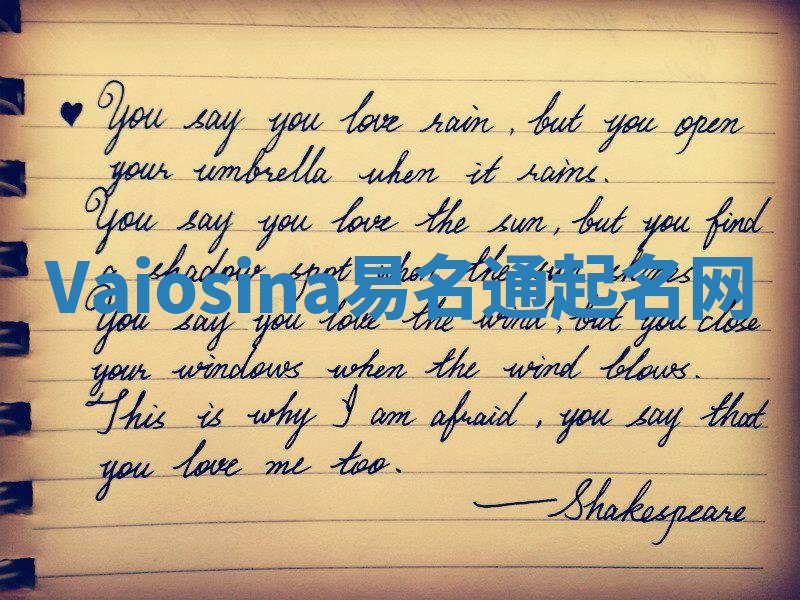 ♥ You say you love rain, but you open
your umbrella when it rains.
You say you love the sun, but you find
a shadow spot when the sun shines.
Vaiosina易名通起名网
You say you love the wind, but you close
your windows when the wind blows.
This is why I am afraid, you say that
you love me too.
—Shakespeare